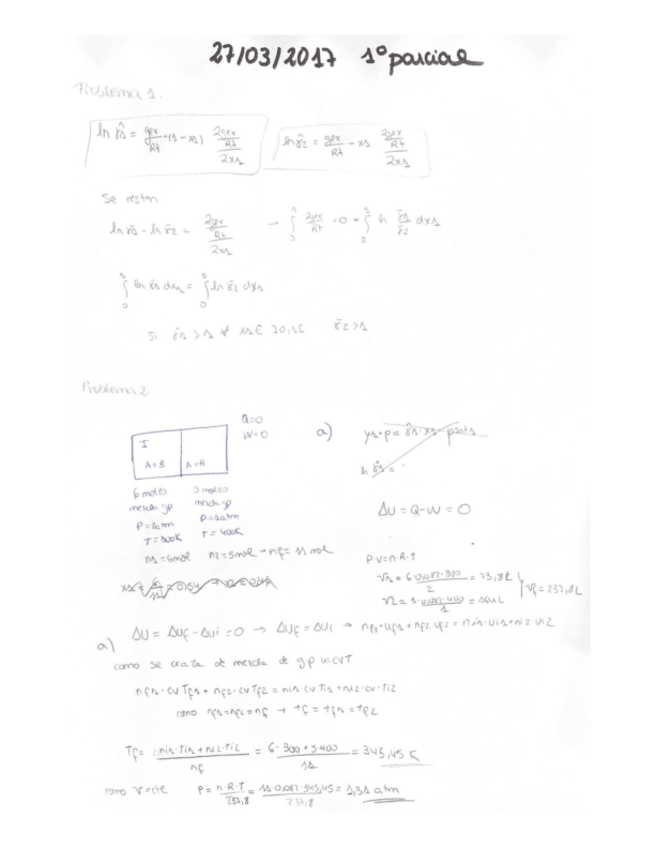 27/03/2017 1º parcial
Problema 1.
ln γ̂1 = gex/Rt + (1 - x1) ∂gex/Rt / ∂x1
ln γ̂2 = gex/Rt - x1 ∂gex/Rt / ∂x1
Se restan
ln γ̂1 - ln γ̂2 = ∂gex/Rt / ∂x1 → ∫₀¹ ∂gex/Rt = 0 = ∫₀¹ ln γ̂1/γ̂2 dx1
∫₀¹ ln γ̂1 dx1 = ∫₀¹ ln γ̂2 dx1
Si γ̂1 > 1 ∀ x1 ∈ ]0,1[ γ̂2 > 1
Problema 2
Q=0
W=0
I
A+B A+B
6 moles 5 moles
mezcla gp mezcla gp
P=2atm P=1atm
T=300K T=400K
n1=6mol n2=5mol → nf=11mol
a)
y1·P = γ̂1·x1·Psat1
ln γ̂1 =
ΔU = Q-W = 0
P·V=n·R·T
V1 = 6·0,082·300/2 = 73,8L
Vf=237,8L
a) ΔU = ΔUf - ΔUi = 0 → ΔUf = ΔUi → nf1·uf1 + nf2·uf2 = ni1·ui1 + ni2·ui2
como se trata de mezcla de gp u=cvT
nf1·cv Tf1 + nf2·cv Tf2 = ni1·cv Ti1 + ni2·cv·Ti2
como nf1=nf2=nf → tf = tf1 = tf2
Tf = ni1·Ti1 + ni2·Ti2 / nf = 6·300+5·400 / 11 = 345,45 K
como V=cte P = n·R·T / 237,8 = 11·0,082·345,45 / 237,8 = 1,31 atm